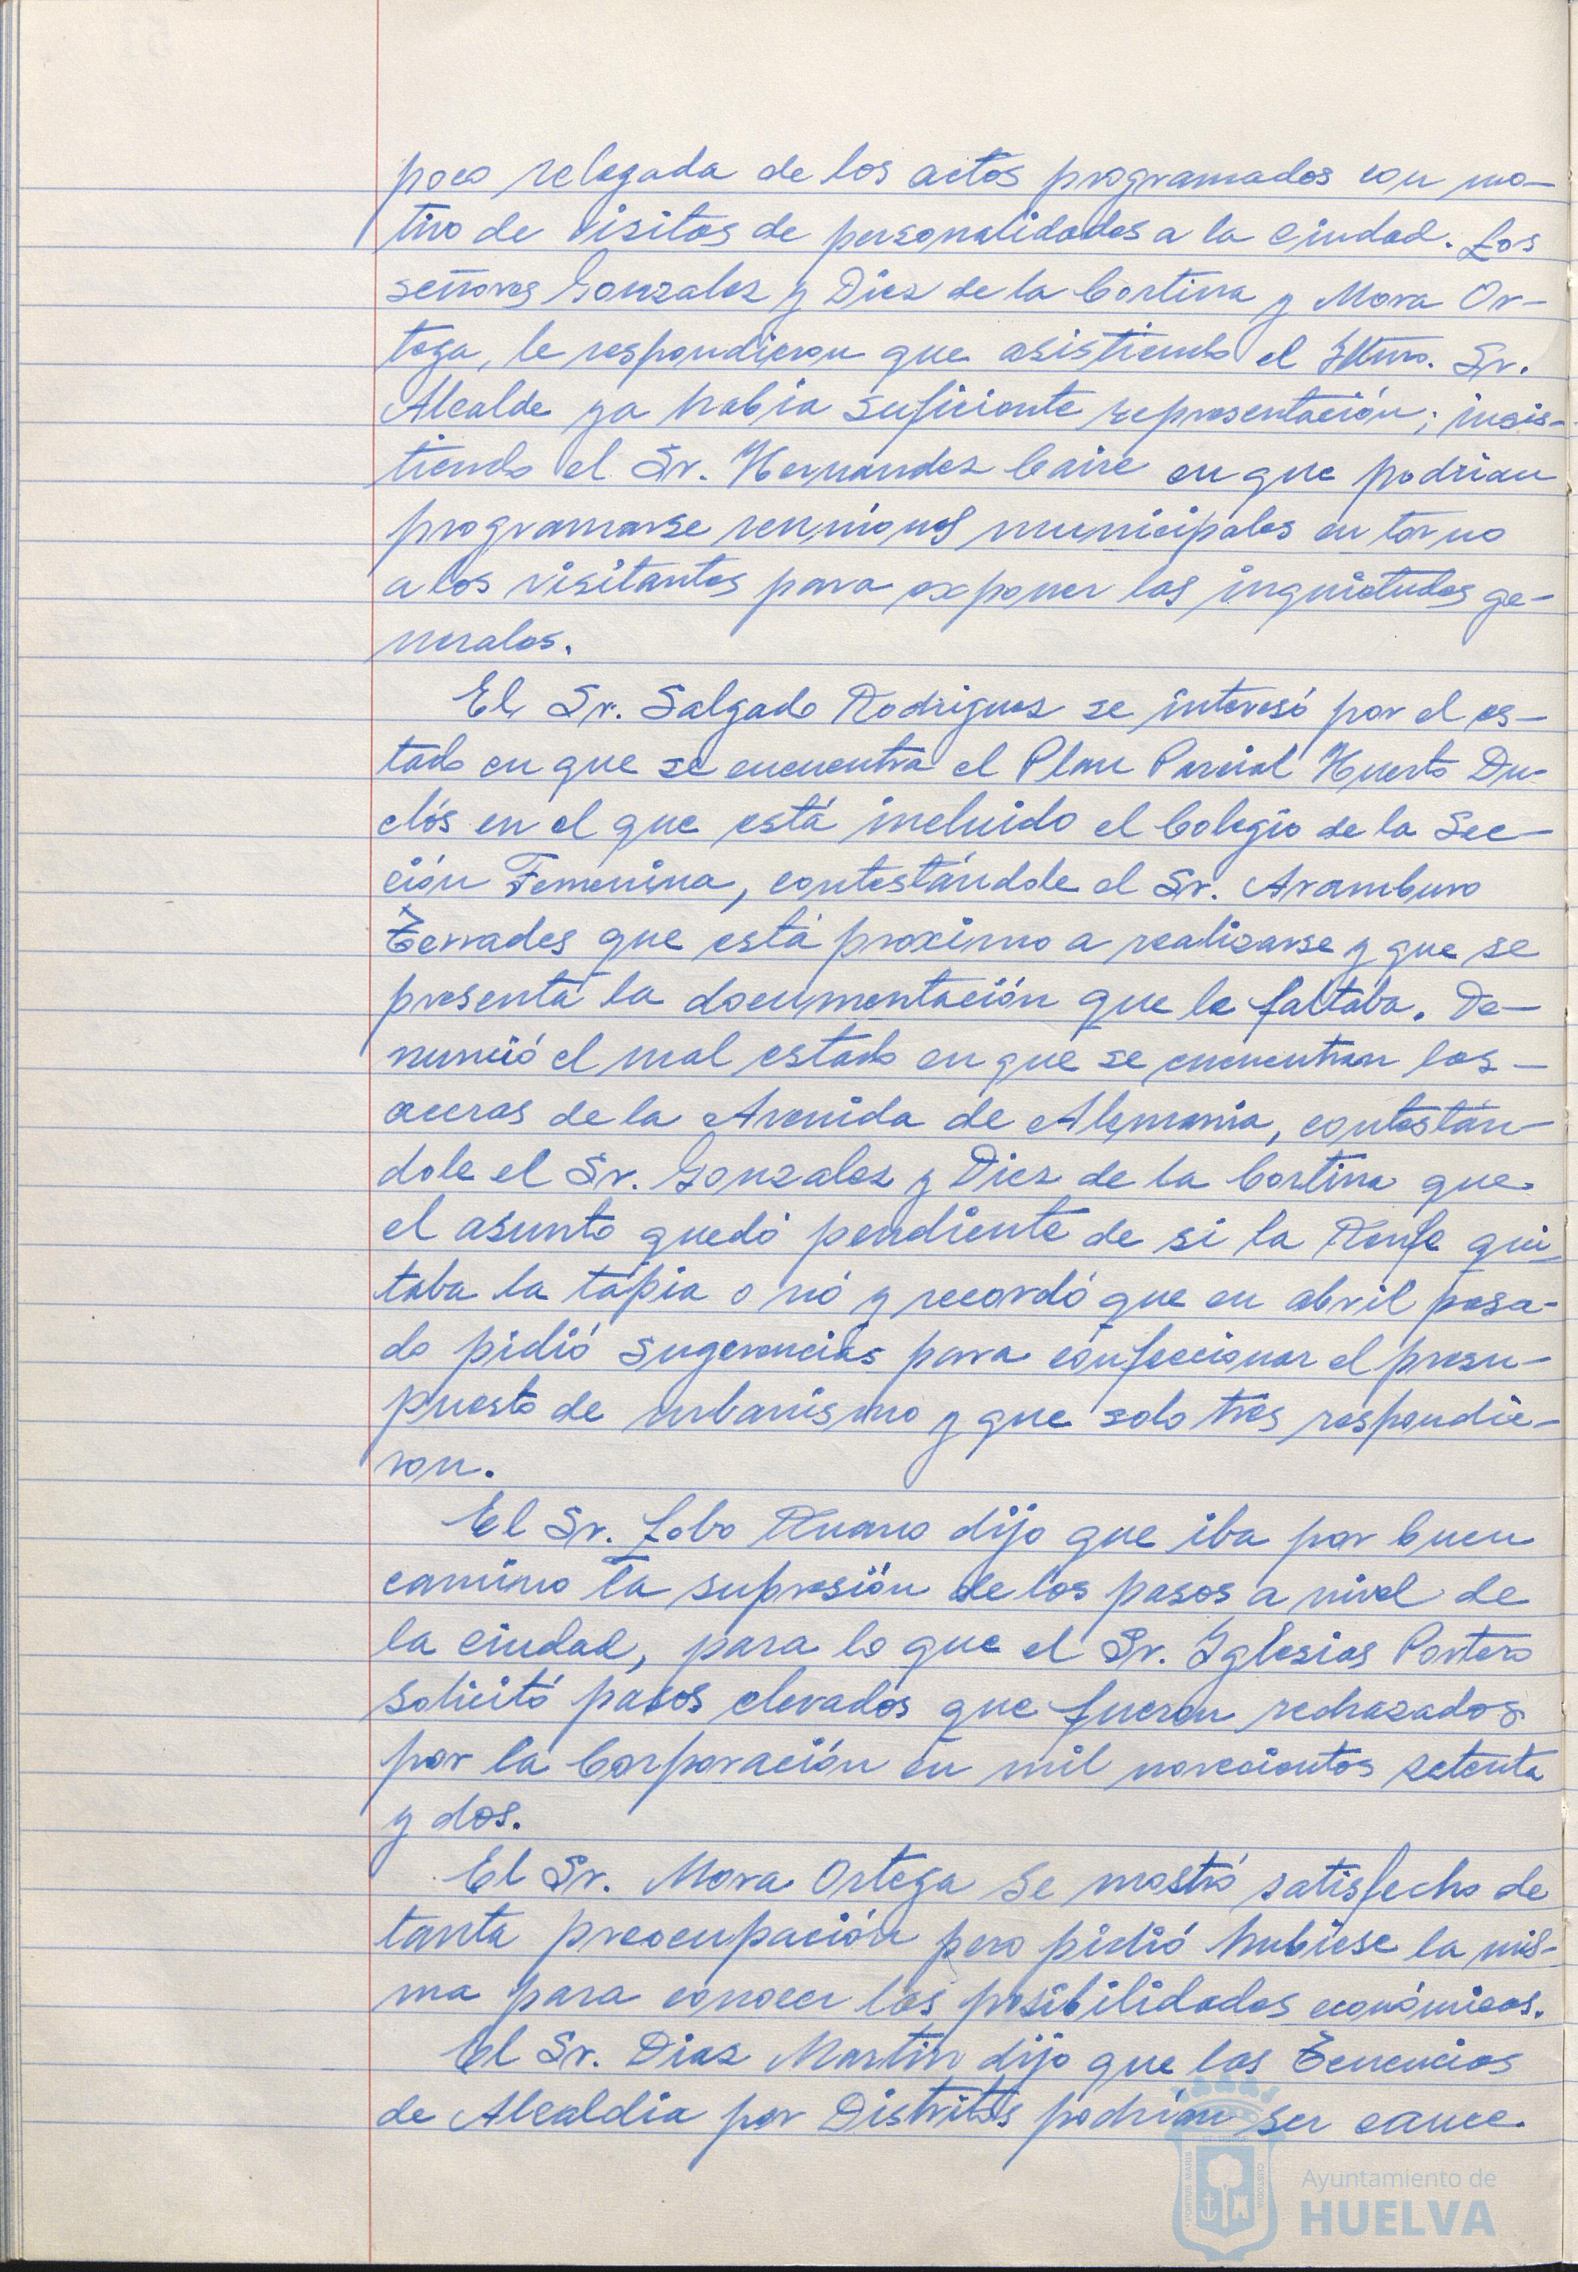 poco relegada de los actos programados con mo-
tivo de visitas de personalidades a la ciudad. Los
señores Gonzalez y Diez de la Cortina y Mora Or-
tega, le respondieron que asistiendo el Iltmo. Sr.
Alcalde ya habia suficiente representación; insis-
tiendo el Sr. Hernandez Caire en que podrian
programarse reuniones municipales en torno
a los visitantes para exponer las inquietudes ge-
nerales.
El Sr. Salgado Rodriguez se interesó por el es-
tado en que se encuentra el Plan Parcial Huerto Du-
clós en el que está incluido el Colegio de la Sec-
ción Femenina, contestándole el Sr. Aramburo
Terrades que está proximo a realizarse y que se
presenta la documentación que le faltaba. De-
nunció el mal estado en que se encuentran las -
aceras de la Avenida de Alemania, contestán-
dole el Sr. Gonzalez y Diez de la Cortina que
el asunto quedó pendiente de si la Renfe qui-
taba la tapia o nó y recordó que en abril pasa-
do pidió sugerencias para confeccionar el presu-
puesto de urbanismo y que solo tres respondie-
ron.
El Sr. Lobo Ruano dijo que iba por buen
camino la supresión de los pasos a nivel de
la ciudad, para lo que el Sr. Iglesias Portero
solicitó pasos elevados que fueron rechazados
por la Corporación en mil novecientos setenta
y dos.
El Sr. Mora Ortega se mostró satisfecho de
tanta preocupación pero pidió hubiese la mis-
ma para conocer las posibilidades económicas.
El Sr. Diaz Martin dijo que las Tenencias
de Alcaldia por Distritos podrian ser cauce
PORTUS MARIS
CUSTODIA
Ayuntamiento de
HUELVA